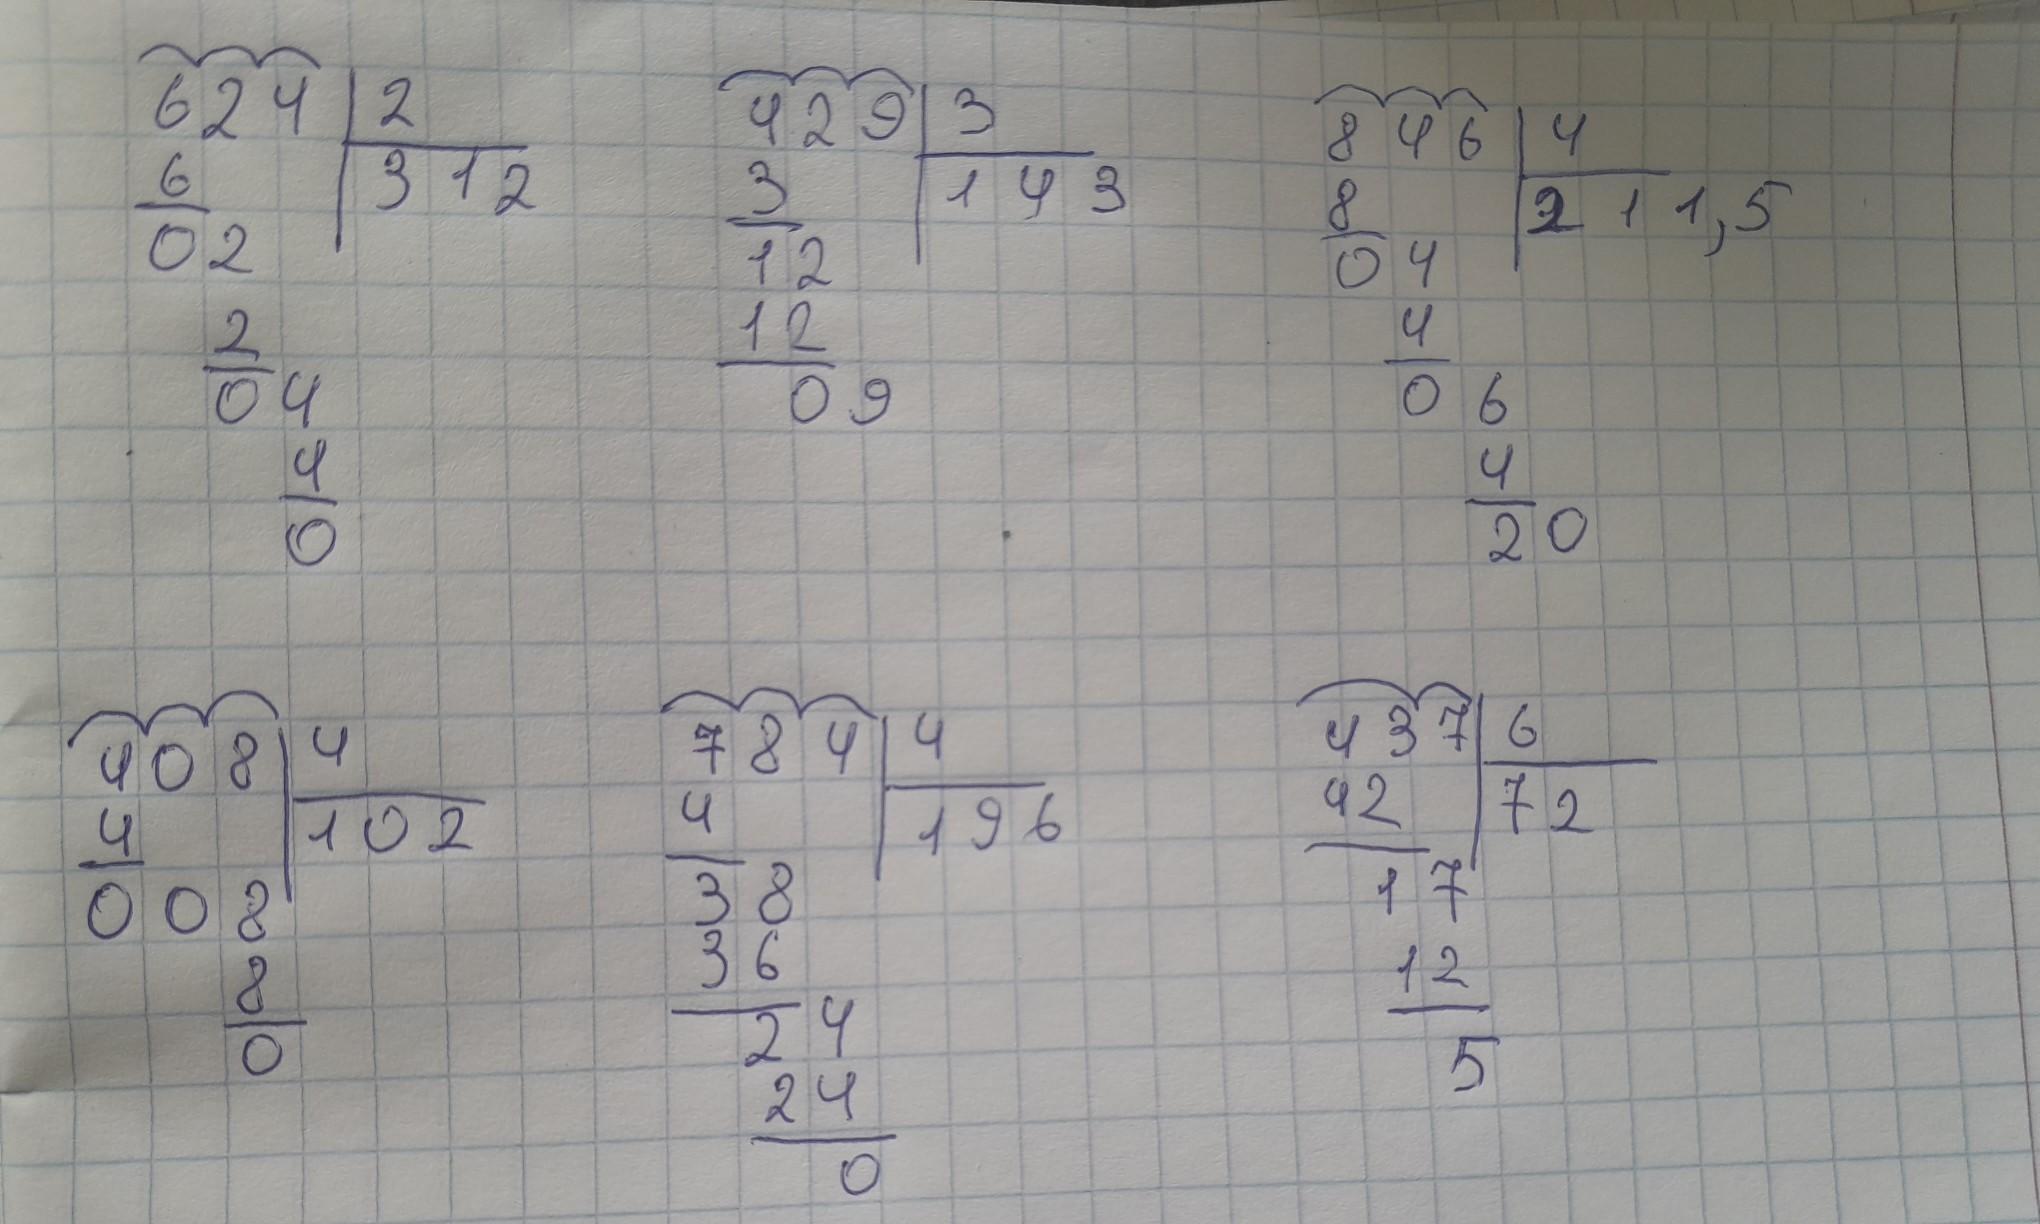 624 2 429 3 846 4
6 312 3 143 8 211,5
02 12 04
2 12 4
04 09 06
4 4
0 20
408 4 784 4 437 6
4 102 4 196 42 72
008 38 17
8 36 12
0 24 5
24
0